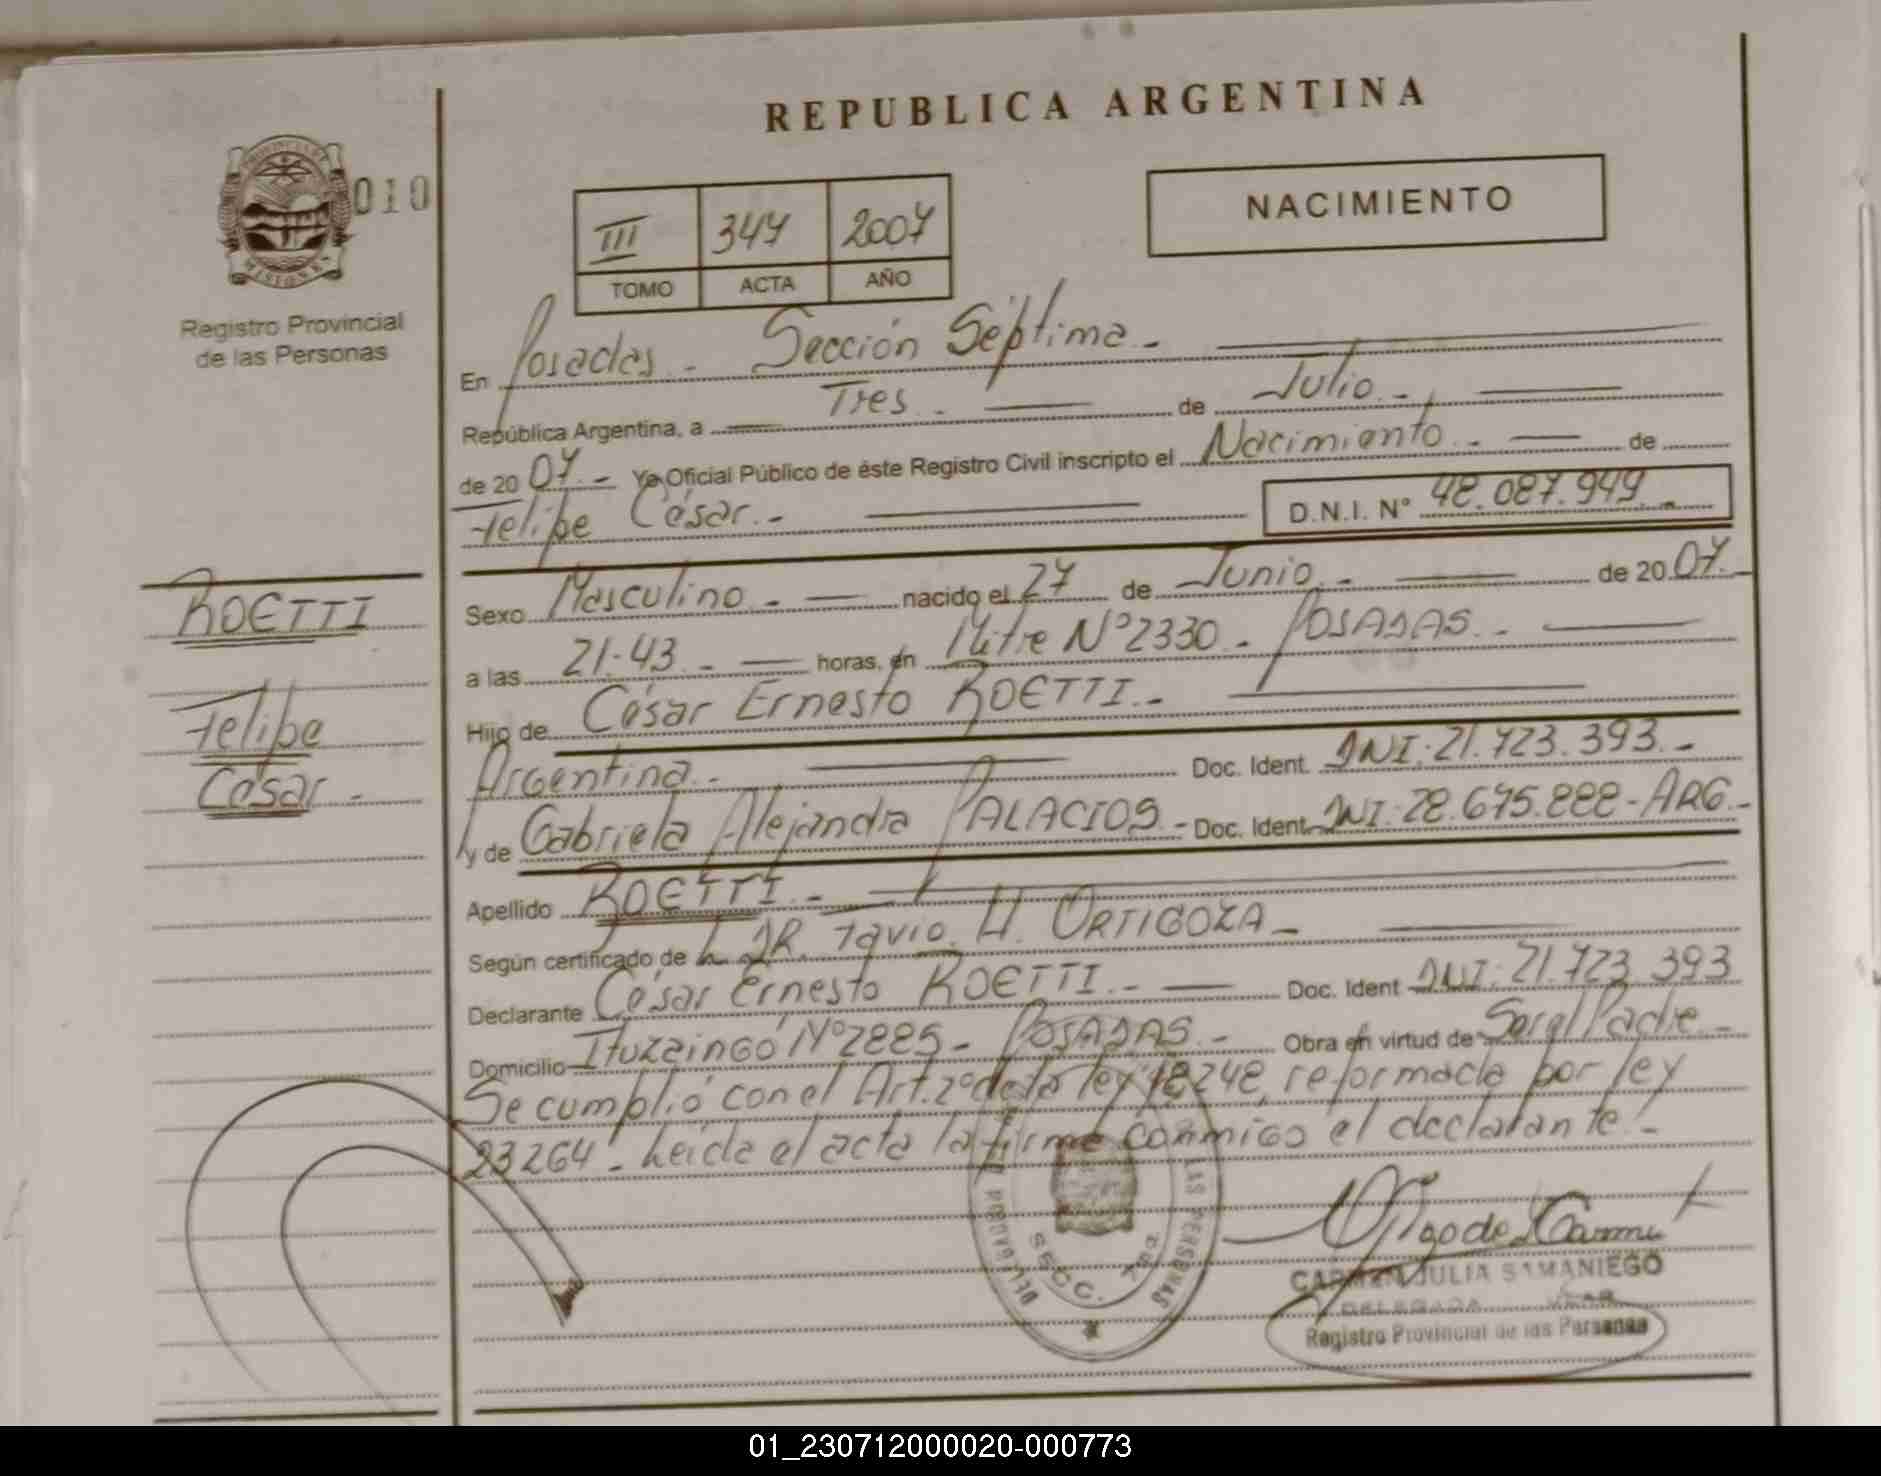 REPUBLICA ARGENTINA
PROVINCIA DE MISIONES
010
NACIMIENTO
III 347 2007
TOMO ACTA AÑO
Registro Provincial
de las Personas
En Posadas - Sección Séptima -
República Argentina, a Tres - de Julio -
de 2007.- Yo Oficial Público de éste Registro Civil inscripto el Nacimiento - de
Felipe César.- D.N.I. Nº 48.087.949.-
Sexo Masculino - nacido el 27 de Junio - de 2007.-
a las 21.43 - horas, en Mitre Nº 2330 - POSADAS -
Hijo de César Ernesto ROETTI.-
Argentina - Doc. Ident. DNI: 21.723.393.-
y de Gabriela Alejandra PALACIOS.- Doc. Ident. DNI: 28.675.888 - ARG.-
Apellido ROETTI.-
Según certificado de DR. H. ORTIGOZA -
Declarante César Ernesto ROETTI.- Doc. Ident DNI: 21.723.393
Domicilio Ituzaingó Nº 2885 - POSADAS.- Obra en virtud de Ser el Padre -
Se cumplió con el Art. 2º de la ley 18248, reformada por ley
23264 - Leída el acta la firma conmigo el declarante.-
ROETTI
Felipe
César -
SECC. 7ma
LAS PERSONAS
CARMEN JULIA SAMANIEGO
DELEGADA
Registro Provincial de las Personas
01_230712000020-000773